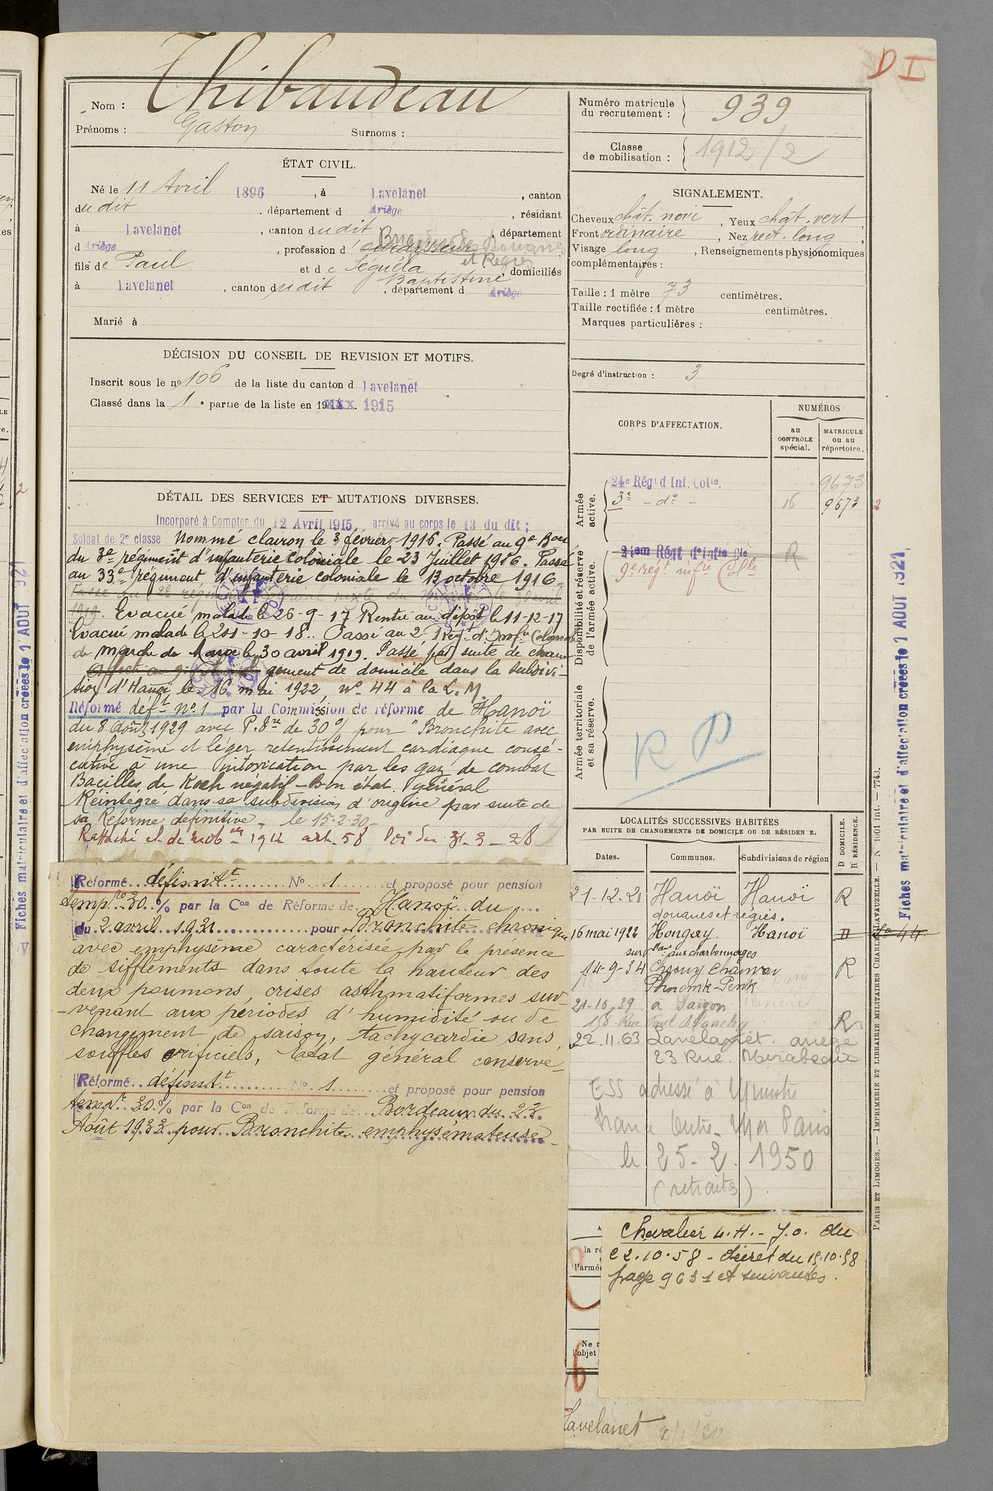 D I
Nom : Thibaudeau
Prénoms : Gaston Surnoms :
Numéro matricule
du recrutement : 939
Classe
de mobilisation : 1912/2
ÉTAT CIVIL.
Né le 11 Avril 1896, à Lavelanet, canton
dudit, département d Ariège, résidant
à Lavelanet, canton dudit, département
d Ariège, profession d
et Régies
fils de Paul et de Séguéla Baptistine, domiciliés
à Lavelanet, canton dudit, département d Ariège
Marié à
SIGNALEMENT.
Cheveux chât. noir, Yeux chat. vert
Front ordinaire, Nez rect. long,
Visage long, Renseignements physionomiques
complémentaires :
Taille : 1 mètre 73 centimètres.
Taille rectifiée : 1 mètre centimètres.
Marques particulières :
Degré d'instruction : 3
DÉCISION DU CONSEIL DE REVISION ET MOTIFS.
Inscrit sous le no 106 de la liste du canton d Lavelanet
Classé dans la 1e partie de la liste en 19 xxx. 1915
CORPS D'AFFECTATION.
NUMÉROS
au
CONTRÔLE
spécial.
MATRICULE
ou au
répertoire.
Armée
active.
24e Régt d Inf. Colle. 9673
3e - do - 16 9673
Disponibilité et réserve
de l'armée active.
21em Régt d'Infie Cle R
9e régt infie Colle
Armée territoriale
et sa réserve.
R D
DÉTAIL DES SERVICES ET MUTATIONS DIVERSES.
Incorporé à Compter du 12 Avril 1915, arrivé au corps le 13 du dit ;
Soldat de 2e classe Nommé clairon le 3 février 1916. Passé au 9e Bon
du 3e régiment d'infanterie coloniale le 23 Juillet 1916. Passé
au 33e régiment d'infanterie coloniale le 13 octobre 1916.
1919. Evacué malade le 26-9-17 Rentré au dépôt le 11-12-17
Evacué malade le 24-10-18. Passé au 2e Rég. d'Inf. Coloniale
de marche du Maroc le 30 avril 1919. Passé par suite de chan-
gement de domicile dans la subdivi-
sion d'Hanoï le 16 mai 1922, No 44 à la L. M.
Réformé deft no 1 par la Commission de réforme de Hanoï
du 8 Août 1929 avec P. 8re de 30% pour "Bronchite avec
emphysème et léger retentissement cardiaque consé-
cutive à une intoxication par les gaz de combat
Bacilles de Koch négatif - bon état général
Réintégré dans sa subdivision d'origine par suite de
sa Réforme définitive. le 15-2-30
Rattaché cl. de mobon 1912 art. 58 loi du 31-3-28
Réformé définitt No 1 et proposé pour pension
tempre 30 % par la Con de Réforme de Hanoï du
du 2 avril 1931 pour Bronchite chronique
avec emphysème caractérisée par la présence
de sifflements dans toute la hauteur des
deux poumons, crises asthmatiformes sur-
venant aux périodes d'humidité ou de
changement de saison, tachycardie sans
souffles orificiels, Etat général conservé
Réformé définitt No 1 et proposé pour pension
tempre 30 % par la Con de Réforme de Bordeaux du 23
Août 1933 pour Bronchite emphysémateuse
LOCALITÉS SUCCESSIVES HABITÉES
PAR SUITE DE CHANGEMENTS DE DOMICILE OU DE RÉSIDENCE.
Dates. Communes. Subdivisions de région
D DOMICILE.
R RÉSIDENCE.
21-12-21 Hanoï Hanoï R
douanes et régies.
16 mai 1922 Hongay Hanoï D No 44
surllant aux charbonnages
14-9-34 Chamcar R
Phnom-Penh
21-10-39 à Saïgon
R
22.11.63 Lavelanet. ariège
23 Rue Mirabeau
ESS adressé à Ministre
France Outre-Mer Paris
le 25-2. 1950
(retraités)
Chevalier L.H. - J.O. du
22.10.58 - décret du 15.10.58
page 9631 et suivantes.
Lavelanet
Fiches matriculaire et d'affectation créées le 1 AOUT 1921
PARIS ET LIMOGES. — IMPRIMERIE ET LIBRAIRIE MILITAIRES CHARLES-LAVAUZELLE. — N° 1001 Int. — 7743.